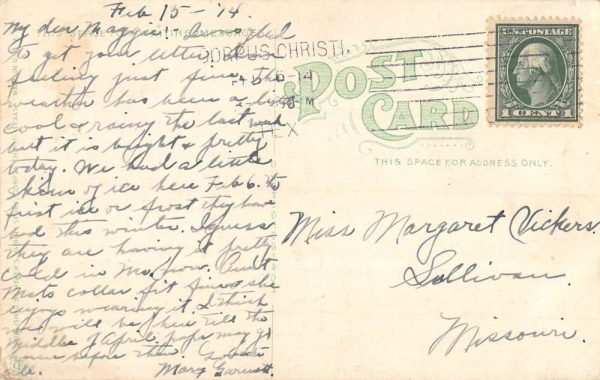 Feb 15 - '14.
My dear Maggie: Am glad
to get your letter. Am
feeling just fine. the
weather has been a bit
cool & rainy the last week
but it is bright & pretty
today. We had a little
skim of ice here Feb 6. the
first ice or frost they have
had this winter. I guess
they are having it pretty
cold in Mo. now. Aunt
collar fit fine & she
enjoys wearing it. I think
we will be here till the
middle of April. papa may go
home before then. Love to
all.
Mary
CORPUS CHRISTI,
TEX
POST
CARD
THIS SPACE FOR ADDRESS ONLY.
U.S. POSTAGE
1 CENT 1
Miss Margaret Vickers.
Sullivan.
Missouri.